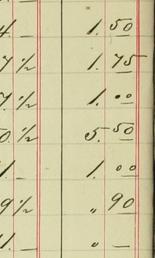 4 — 1. 50
7 ½ 1. 75
7. ½ 1. 00
0. ½ 5. 50
1 — 1. 00
9 ½ „ 90
1. — „ —